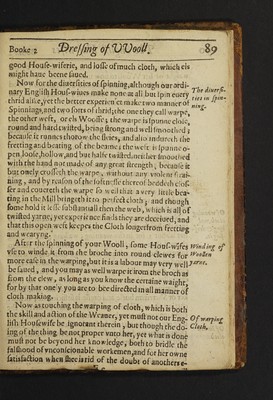 Booke 2 Dressing of VVooll. 89
good House-wiferie, and losse of much cloth, which els
might haue beene saued.
Now for the diuersities of spinning, although our ordi-
nary English Hous-wiues make none at all but spin euery
thrid alike, yet the better experienct make two manner of
Spinnings, and two sorts of thrid; the one they call warpe,
the other weft, or els Woofe; the warpe is spunne close,
round and hard twisted, being strong and well smoothed;
because it runnes through the sleies, and also indureth the
fretting and beating of the beame; the weft is spunne o-
pen, loose, hollow, and but halfe twisted, neither smoothed
with the hand not made of any great strength; because it
but onely crosseth the warpe, without any violent strai-
ning, and by reason of the softnesse thereof beddeth clos-
ser and couereth the warpe so well that a very little bea-
ting in the Mill bringeth it to perfect cloth; and though
some hold it lesse substantiall then the web, which is all of
twisted yarne, yet experience finds they are deceiued, and
that this open weft keepes the Cloth longer from fretting
and wearyng.
The diuersi-
ties in spin-
ning.
After the spinning of your Wooll, some Hous-wifes
vse to winde it from the broche into round clewes for
more ease in the warping, but it is a labor may very well
be saued, and you may as well warpe it from the broch as
from the clew, as long as you know the certaine waight,
for by that onely you are to bee directed in all manner of
cloth making.
Winding of
Woollen
yarne.
Now as touching the warping of cloth, which is both
the skill and action of the Weauer, yet must not our Eng-
lish Housewife be ignorant therein, but though the do-
ing of the thing be not proper vnto her, yet what is done
must not be beyond her knowledge, both to bridle the
falshood of vnconscionable workemen, and for her owne
satisfaction when shee is rid of the doubt of anothers e-
Of warping
Cloth.